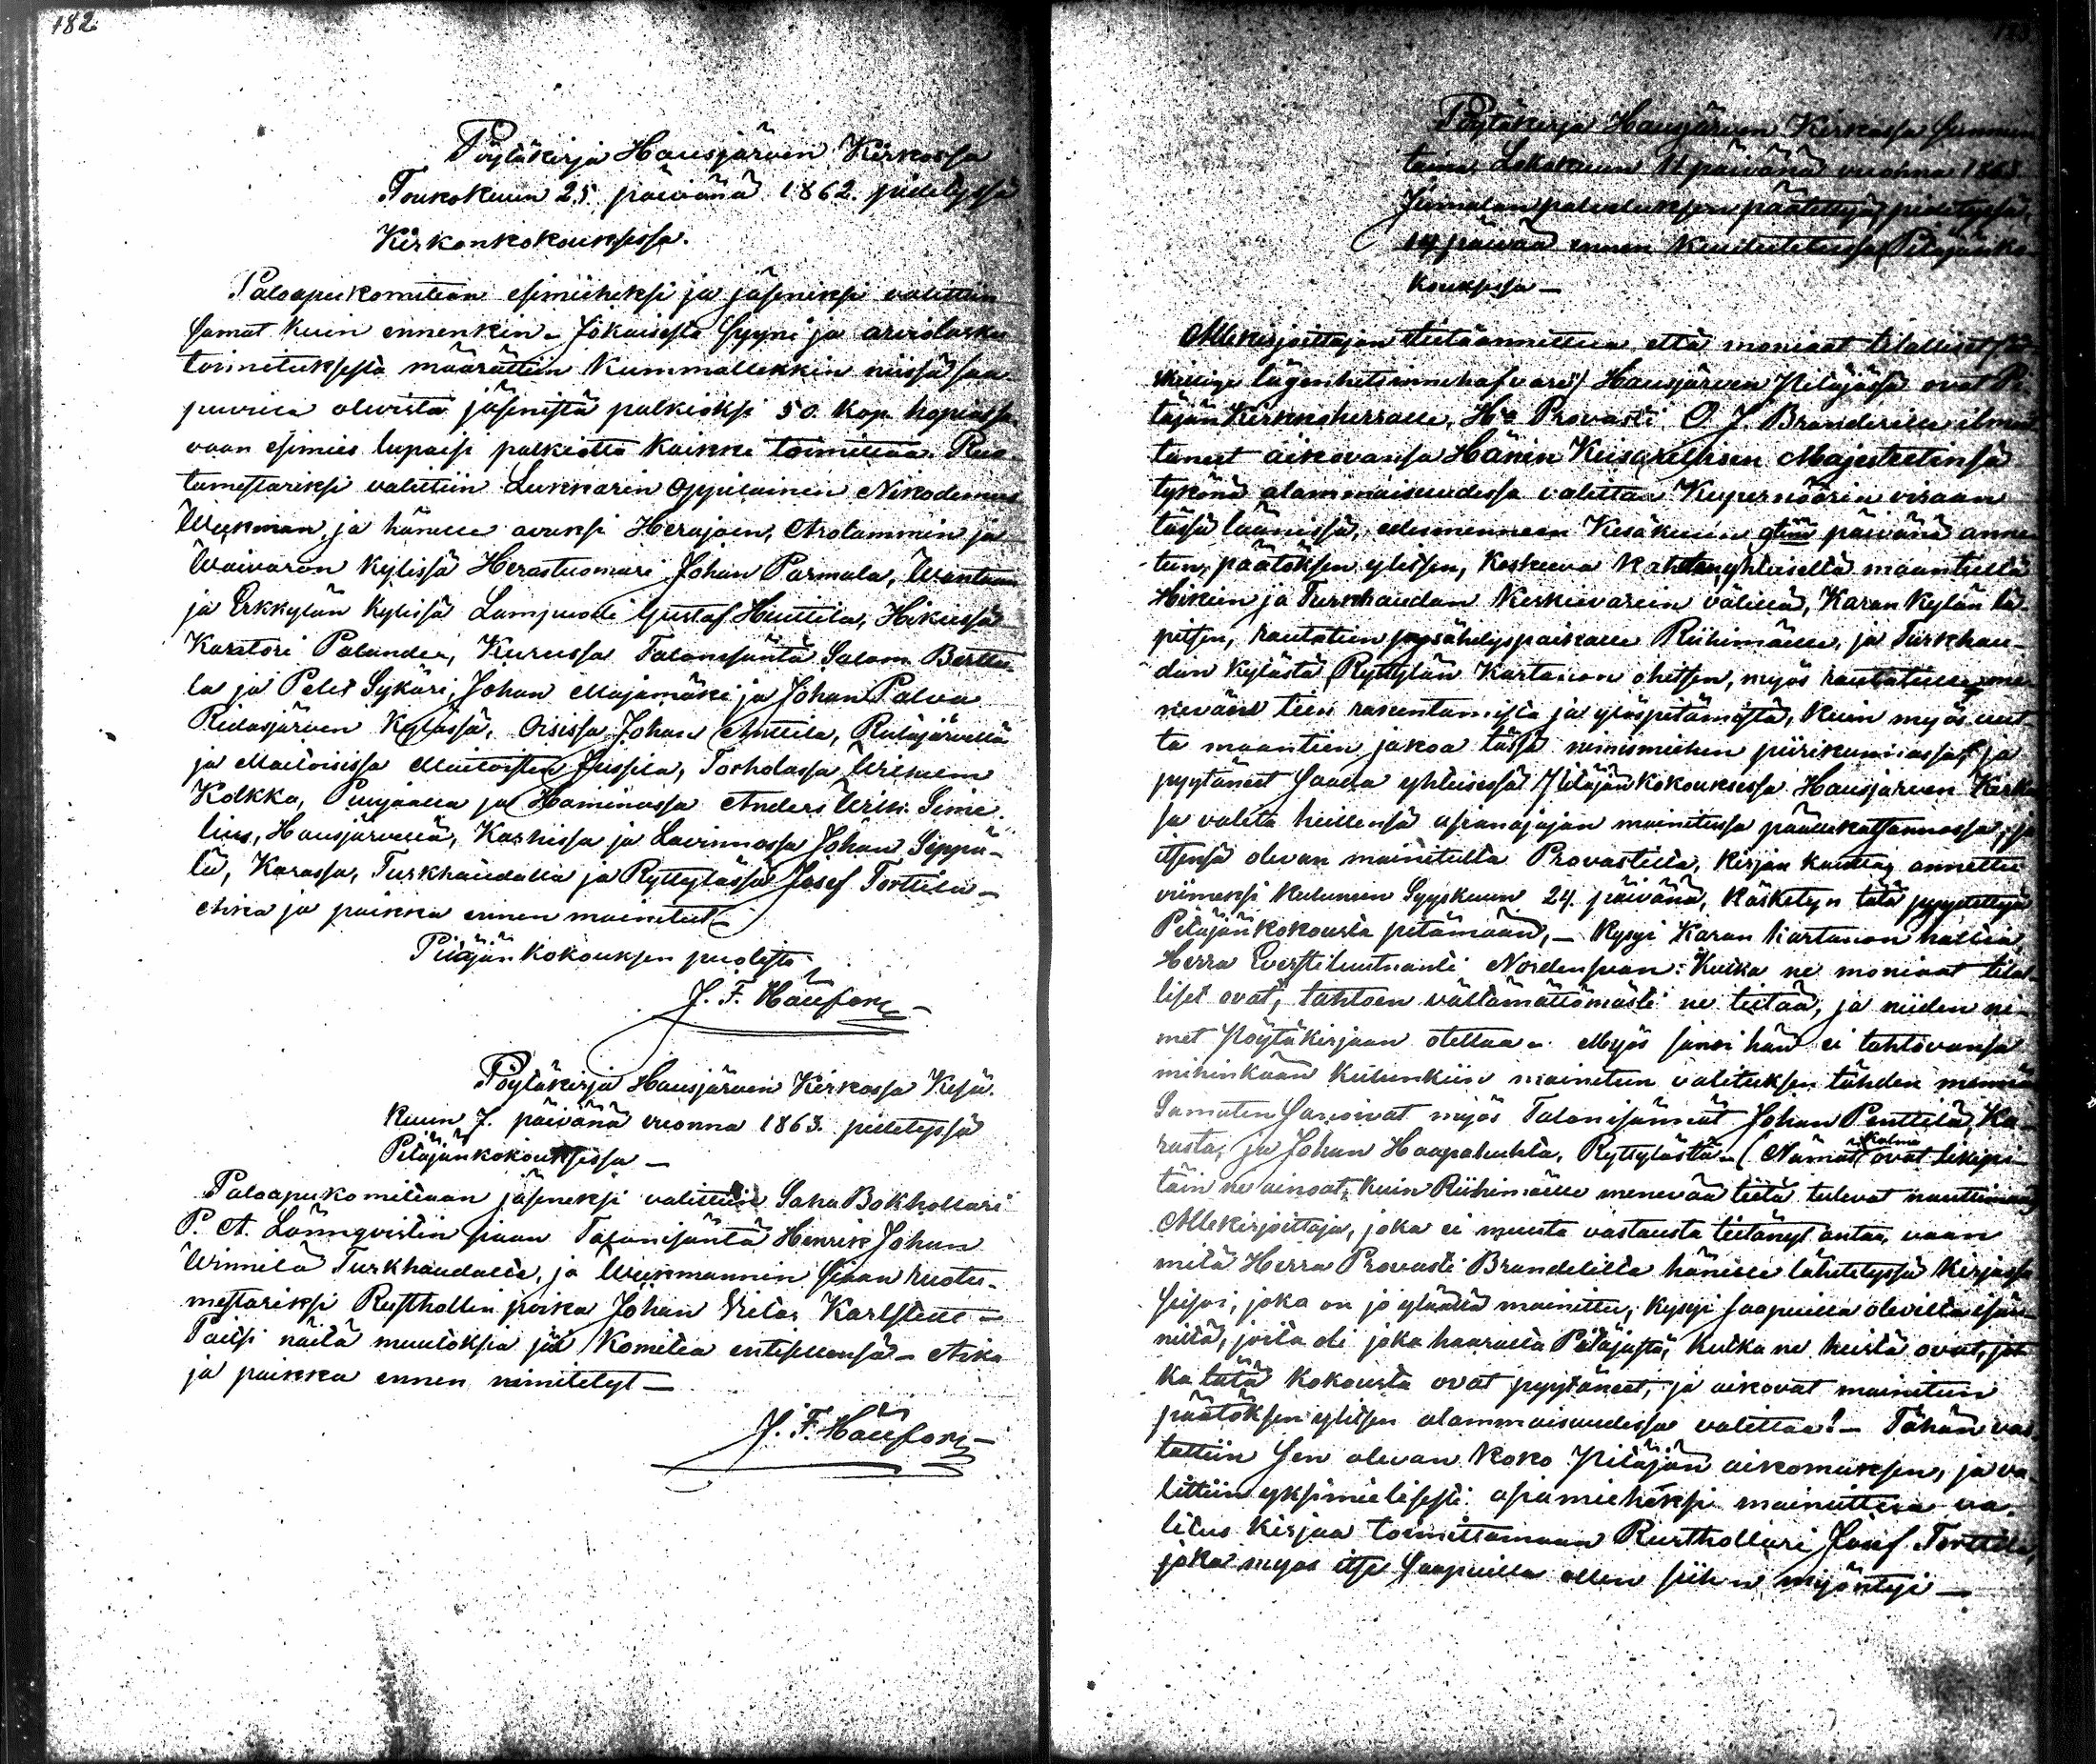 182.
Pöytäkirja Hausjärwen Kirkossa
Toukokuun 25. päiwänä 1862. pidetyssä
Kirkonkokouksessa.
Paloapukomitean esimieheksi ja jäseneksi valittiin
samat kuin ennenkin – Jokaisesta syyni ja arviolasku
toimituksesta määrättiin kummallekkin niissä saa-
puvilla olevista jäsenistä palkioksi 50 kop. hopiassa
vaan esimies lupaisi palkiotta kaikki toimittaa. Ruo-
tumestariksi valittiin Lukkarin oppilainen Nikodemus
Wikman, ja hänelle avuksi Herajoen, Arolammin ja
Waivaron kylissä Herastuomari Johan Parmala, Wantaan
ja Erkkylän kylissä Lampuoti Gustaf Huittila, Hikiässä
Karatöri Palander, Kurussa Talonisäntä Salom. Bertti-
la ja Peter Sykäri, Johan Majamäki ja Johan Palva
Ridasjärven Kylässä, Oisissa Johan Anttila, Rutajärvellä
ja Maitoisissa Maitoisten Jussila, Torholassa Wilhelm
Kolkka, Puujaalla ja Haminassa Anders Wilh. Sime-
lius, Hausjärvellä, Karhissa ja Lavinnossa Johan Seppä-
lä, Karassa, Turkhaudalla ja Ryttylässä Josef Torttila –
Aika ja paikka ennen mainitut –
Pitäjän kokouksen puolesta
J. F. Häufors –
Pöytäkirja Hausjärven Kirkossa Kesä-
kuun 7. päivänä vuonna 1863. pidetyssä
Pitäjänkokouksessa –
Paloapukomiteaan jäseneksi valittiin Saha Bokhollari
P. A. Lönnqvistin siaan Talonisäntä Henrik Johan
Winnilä Turkhaudalta, ja Wikmannin siaan ruotu-
mestariksi Rusthollin poika Johan Karlstedt –
Paitsi näitä muutoksia jäi Komitea entisellensä – Aika
ja paikka ennen nimitetyt –
J. F. Häufors –
Pöytäkirja Hausjärven Kirkossa Sunnun-
taina Lokakuun 11 päivänä vuonna 1863.
Jumalan palveluksen päätettyä, pidetyssä,
14 päivää ennen kuulutetussa Pitäjänko-
kouksessa –
Allekirjoittajan tietäännettua, että moniaat tilalliset
lägenhetsinnehafvare) Hausjärven Pitäjässä ovat Pi-
täjän Kirkkoherralle, H:a Provasti O. J. Branderille ilmoit-
taneet aikovansa Hänen Keisarillisen Majesteetinsä
tykönä alammaisuudessa valittaa Kupernöörin viraan
tässä läänissä, edesmenneen Kesäkuun päivänä anne-
tun päätöksen ylitsen, koskeva kahtenyhteisellä maantiellä
Hikiän ja Turkhaudan Keskievarein välillä, Karan Kylän lä-
pitsen, rautatien pysähdyspaikalle Riihimäelle, ja Turkhau-
dan Kylästä Ryttylän Kartanon ohitsen, myös rautatielle me-
nevään tien rakentamista ja ylöspitämistä, kuin myös uut-
ta maantien jakoa tässä nimismiehen piirikunnassa, ja
pyytäneet saada yhteisessä Pitäjän kokouksessa Hausjärven Kirkos-
sa valita heillensä asianajajan mainitussa päällekatsannossa, ja
itsensä olevan mainitulta Provastilta, kirjan kautta, annettu
viimeksi kuluneen Syyskuun 24. päivänä, käsketyn tätä pyydettyä
Pitäjänkokousta pitämään, – Kysyi Karan Kartanon haltia,
Herra Everstiluutnanti Nordensvan: Kutka ne moniaat tilal-
liset ovat, tahtoen välttämättömästi ne tietää, ja niiden ni-
met Pöytäkirjaan otettaa – Myös sanoi hän ei tahtovansa
mihinkään kulunkiin mainitun valituksen tähden mennä
Samaten sanoivat myös Talonisännät Johan Penttilä, Ka-
rasta, ja Johan Haapahuhta, Ryttylästä – (Nämät kolme ovat likipi-
täin ne ainoat, kuin Riihimäelle menevää tietä tulevat nauttimaan)
Allekirjoittaja, joka ei muuta vastausta tietänyt antaa, vaan
mitä Herra Provasti Branderilta hänelle lähetetyssä Kirjassa
seisoi, joka on jo ylläällä mainittu, kysyi saapuilla olevilta isän-
niltä, joita oli joka haaralta Pitäjästä, kutka ne heistä ovat, jot-
ka tätä kokousta ovat pyytäneet, ja aikovat mainitun
päätöksen ylitsen alammaisuudessa valittaa? – Tähän vas-
tattiin sen olevan koko Pitäjän aikomuksen, ja va-
littiin yksimielisesti asiamieheksi mainittua va-
litus kirjaa toimittamaan Rusthollari Josef Torttila,
joka myös itse saapuilla ollen siihen myöntyi –